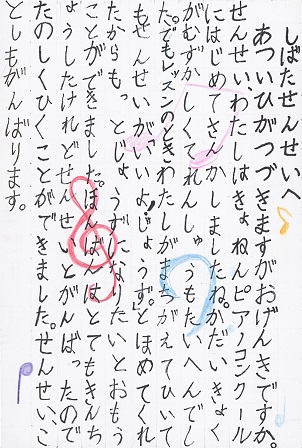 しばたせんせいへ
あついひがつづきますがおげんきですか。
せんせい、わたしはきょねんピアノコンクール
にはじめてさんかしましたね。かだいきょく
がむずかしくてれんしゅうもたいへんでし
た。でもレッスンのときわたしがまちがえてひいて
もせんせいが「いいよ、じょうず」とほめてくれ
たからもっとじょうずになりたいとおもう
ことができました。ほんばんはとてもきんち
ょうしたけれどせんせいとがんばったので
たのしくひくことができました。せんせい、こ
としもがんばります。